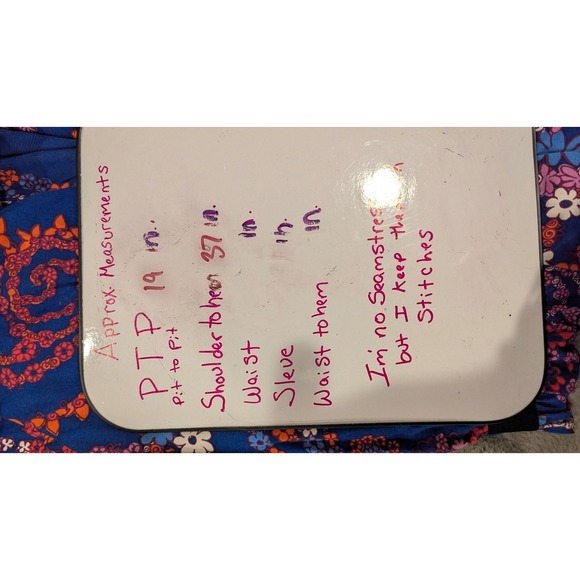 Approx. Measurements
PTP 19 in.
Pit to Pit
Shoulder to hem 37 in.
Waist in.
Sleve in.
Waist to hem in.
I'm no Seamstress
but I keep them in
Stitches